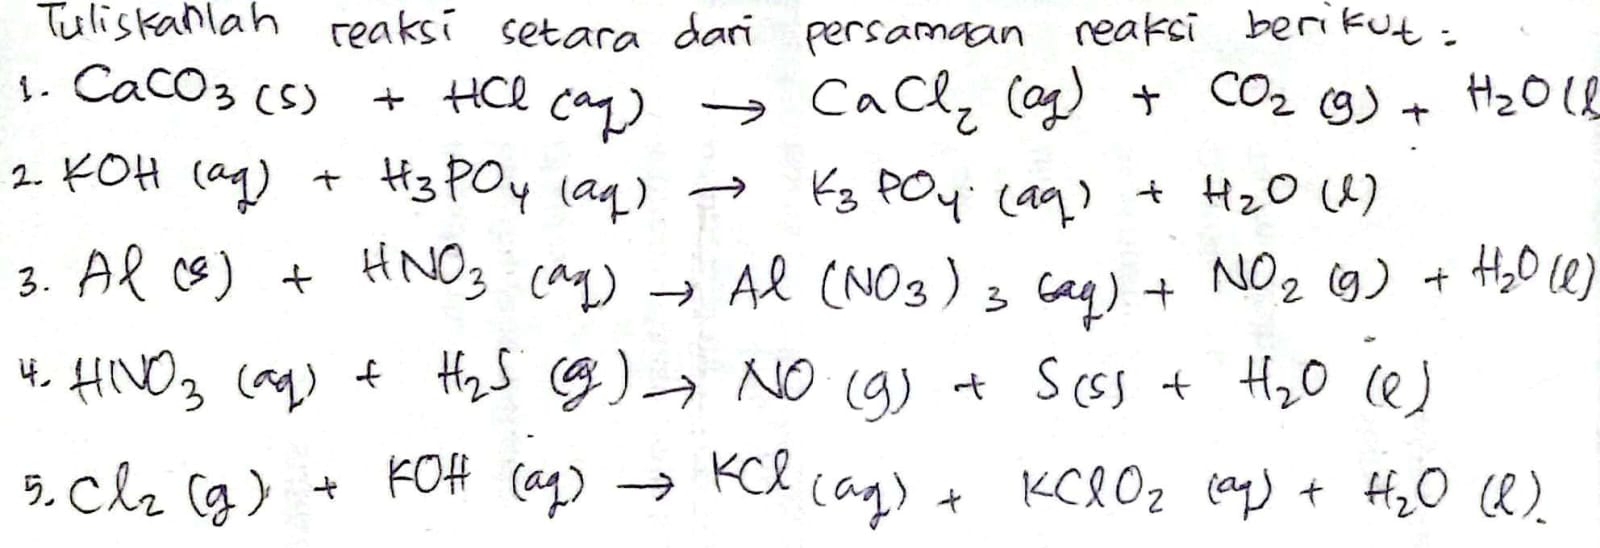 Tuliskanlah reaksi setara dari persamaan reaksi berikut :
1. CaCO3 (s) + HCl (aq) → CaCl2 (aq) + CO2 (g) + H2O (l
2. KOH (aq) + H3PO4 (aq) → K3PO4 (aq) + H2O (l)
3. Al (s) + HNO3 (aq) → Al (NO3)3 (aq) + NO2 (g) + H2O (l)
4. HNO3 (aq) + H2S (g) → NO (g) + S (s) + H2O (l)
5. Cl2 (g) + KOH (aq) → KCl (aq) + KClO2 (aq) + H2O (l).